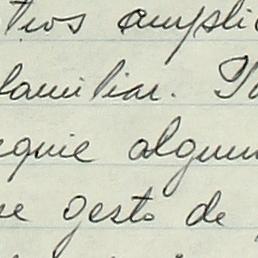 tros ampli
familiar.
equie algun
se gesto de